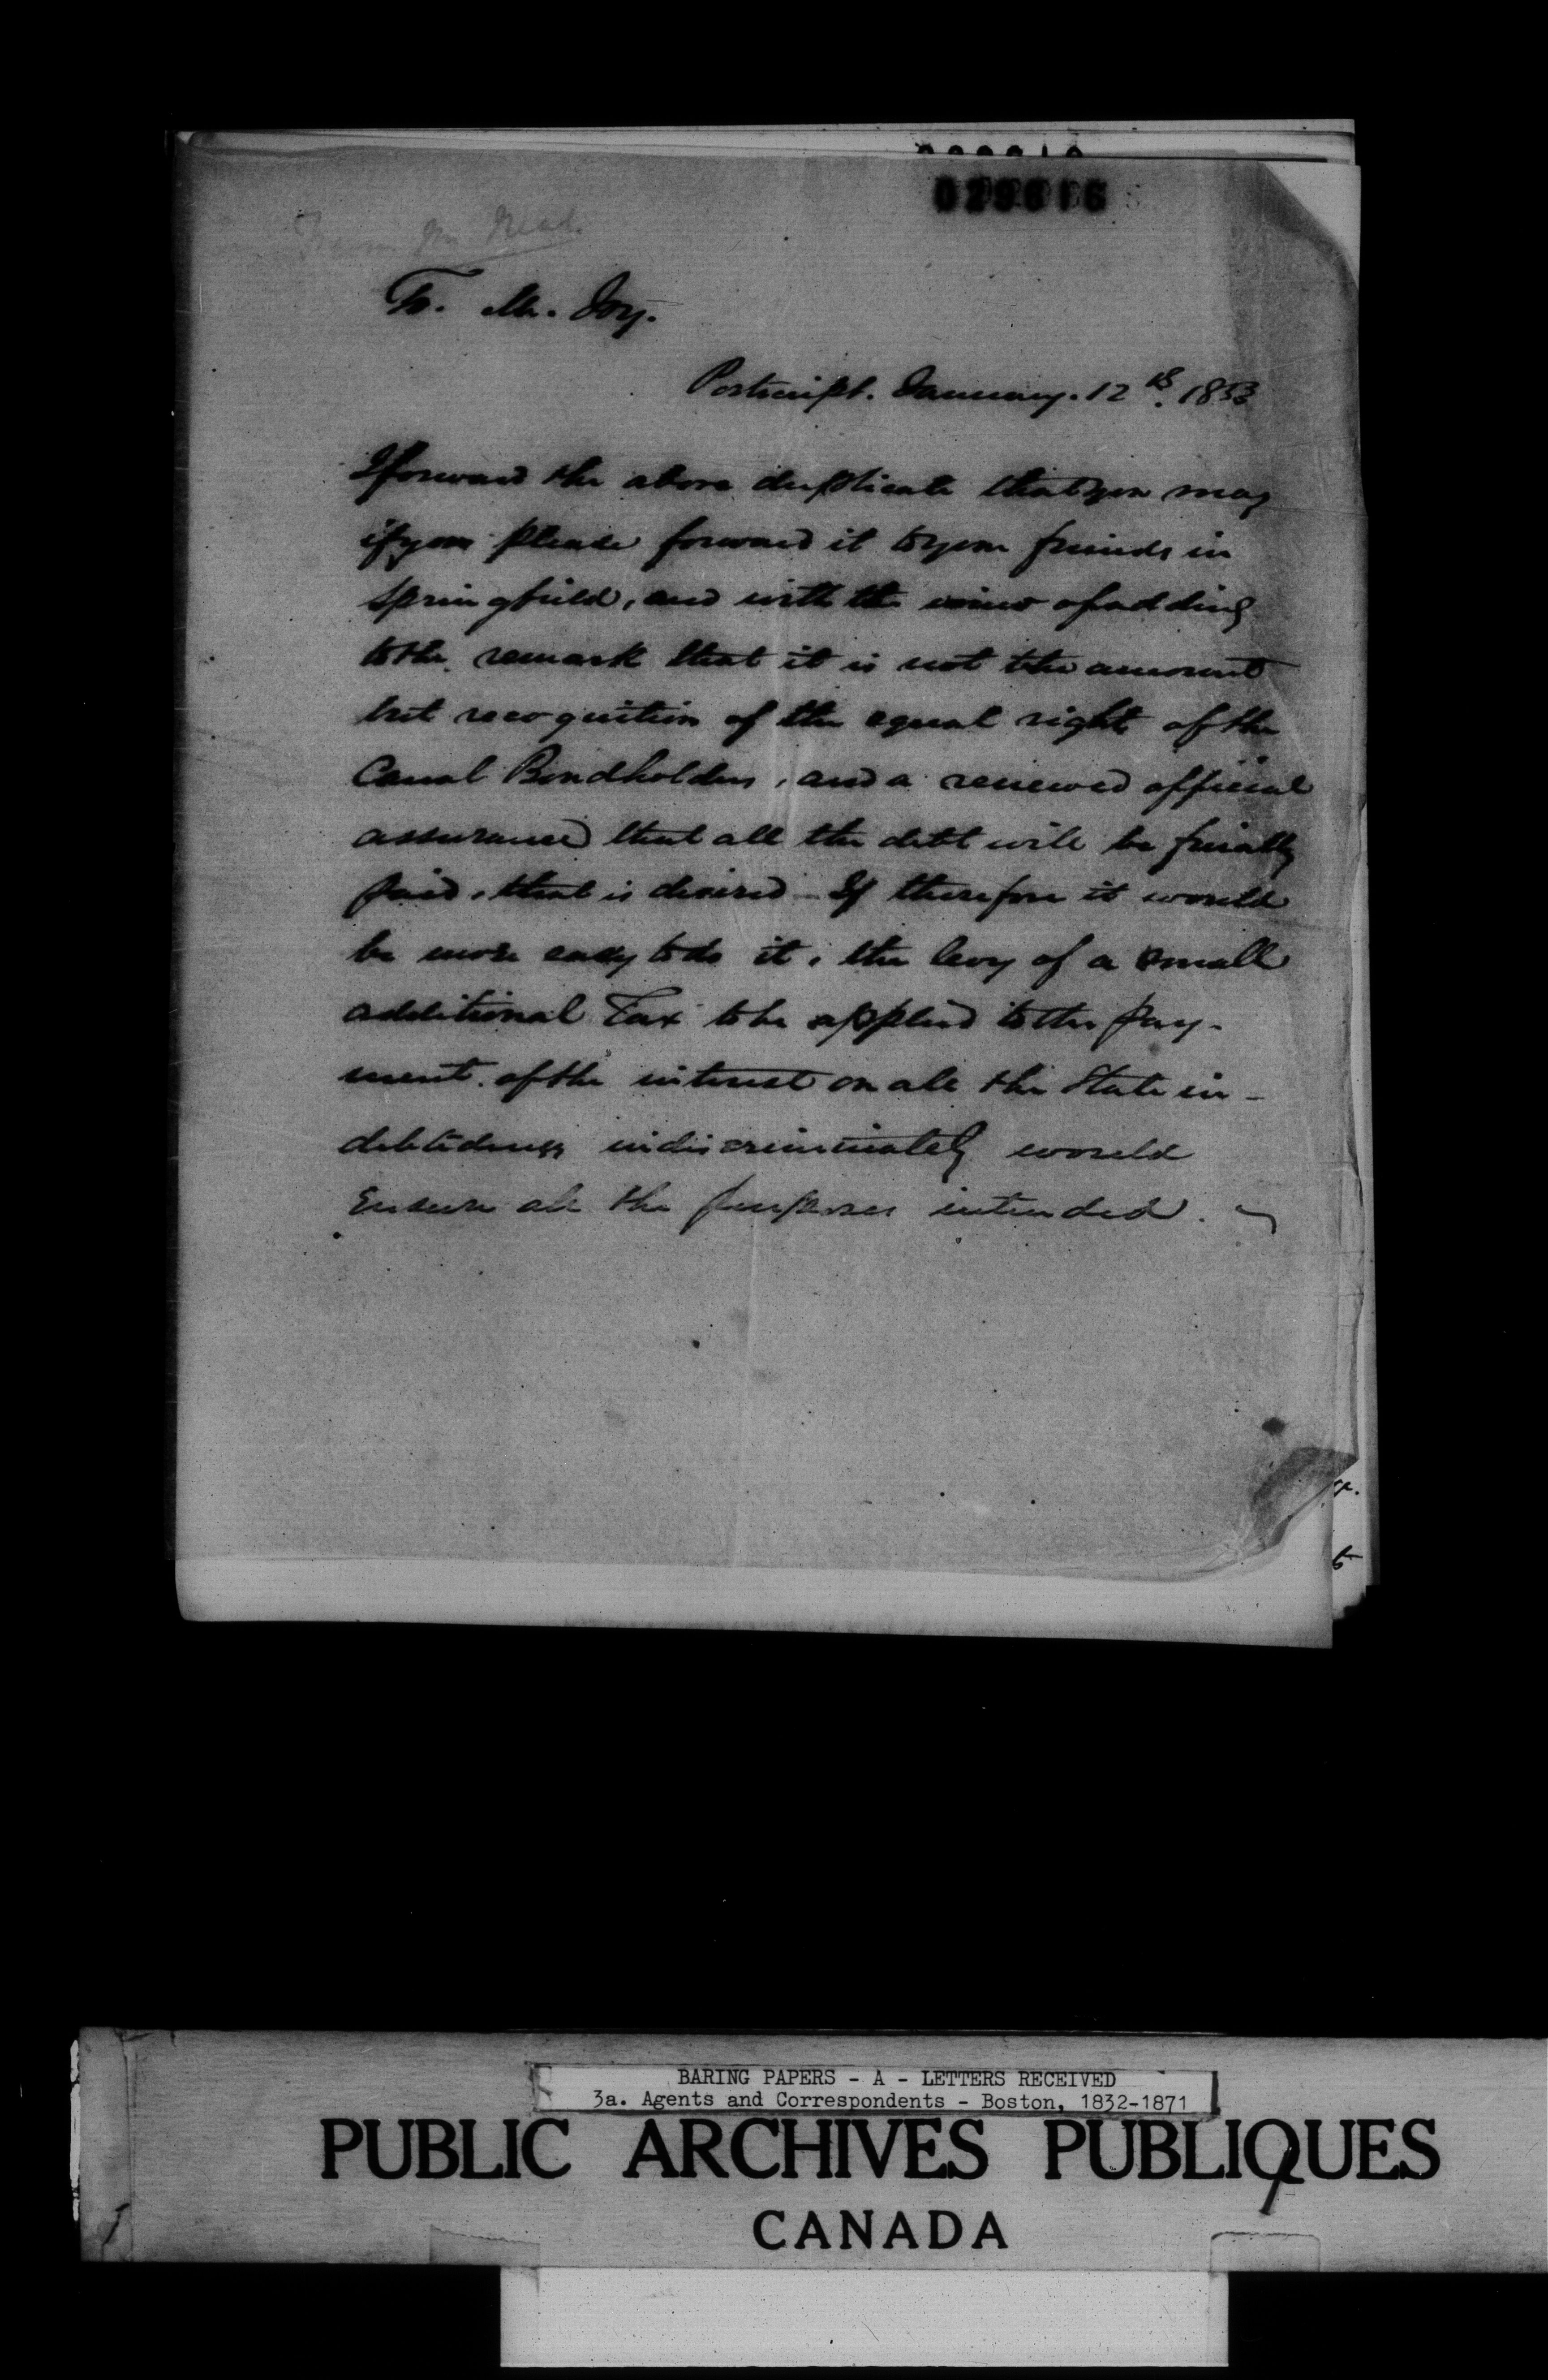 029616
From Mr Mead
To. Mr. Joy.
Postscript. January. 12th. 1853
I forward the above duplicate that you may
if you please forward it to your friends in
Springfield, and with the view of adding
to the remark that it is not the amount
but recognition of the equal right of the
Canal Bondholders, and a renewed official
assurance that all the debt will be finally
paid, that is desired - If therefore it would
be more easy to do it, the levy of a small
additional Tax to be applied to the pay-
ment of the interest on all the State in-
debtedness indiscriminately would
ensure all the purposes intended.
BARING PAPERS - A - LETTERS RECEIVED
3a. Agents and Correspondents - Boston, 1832-1871
PUBLIC ARCHIVES PUBLIQUES
CANADA